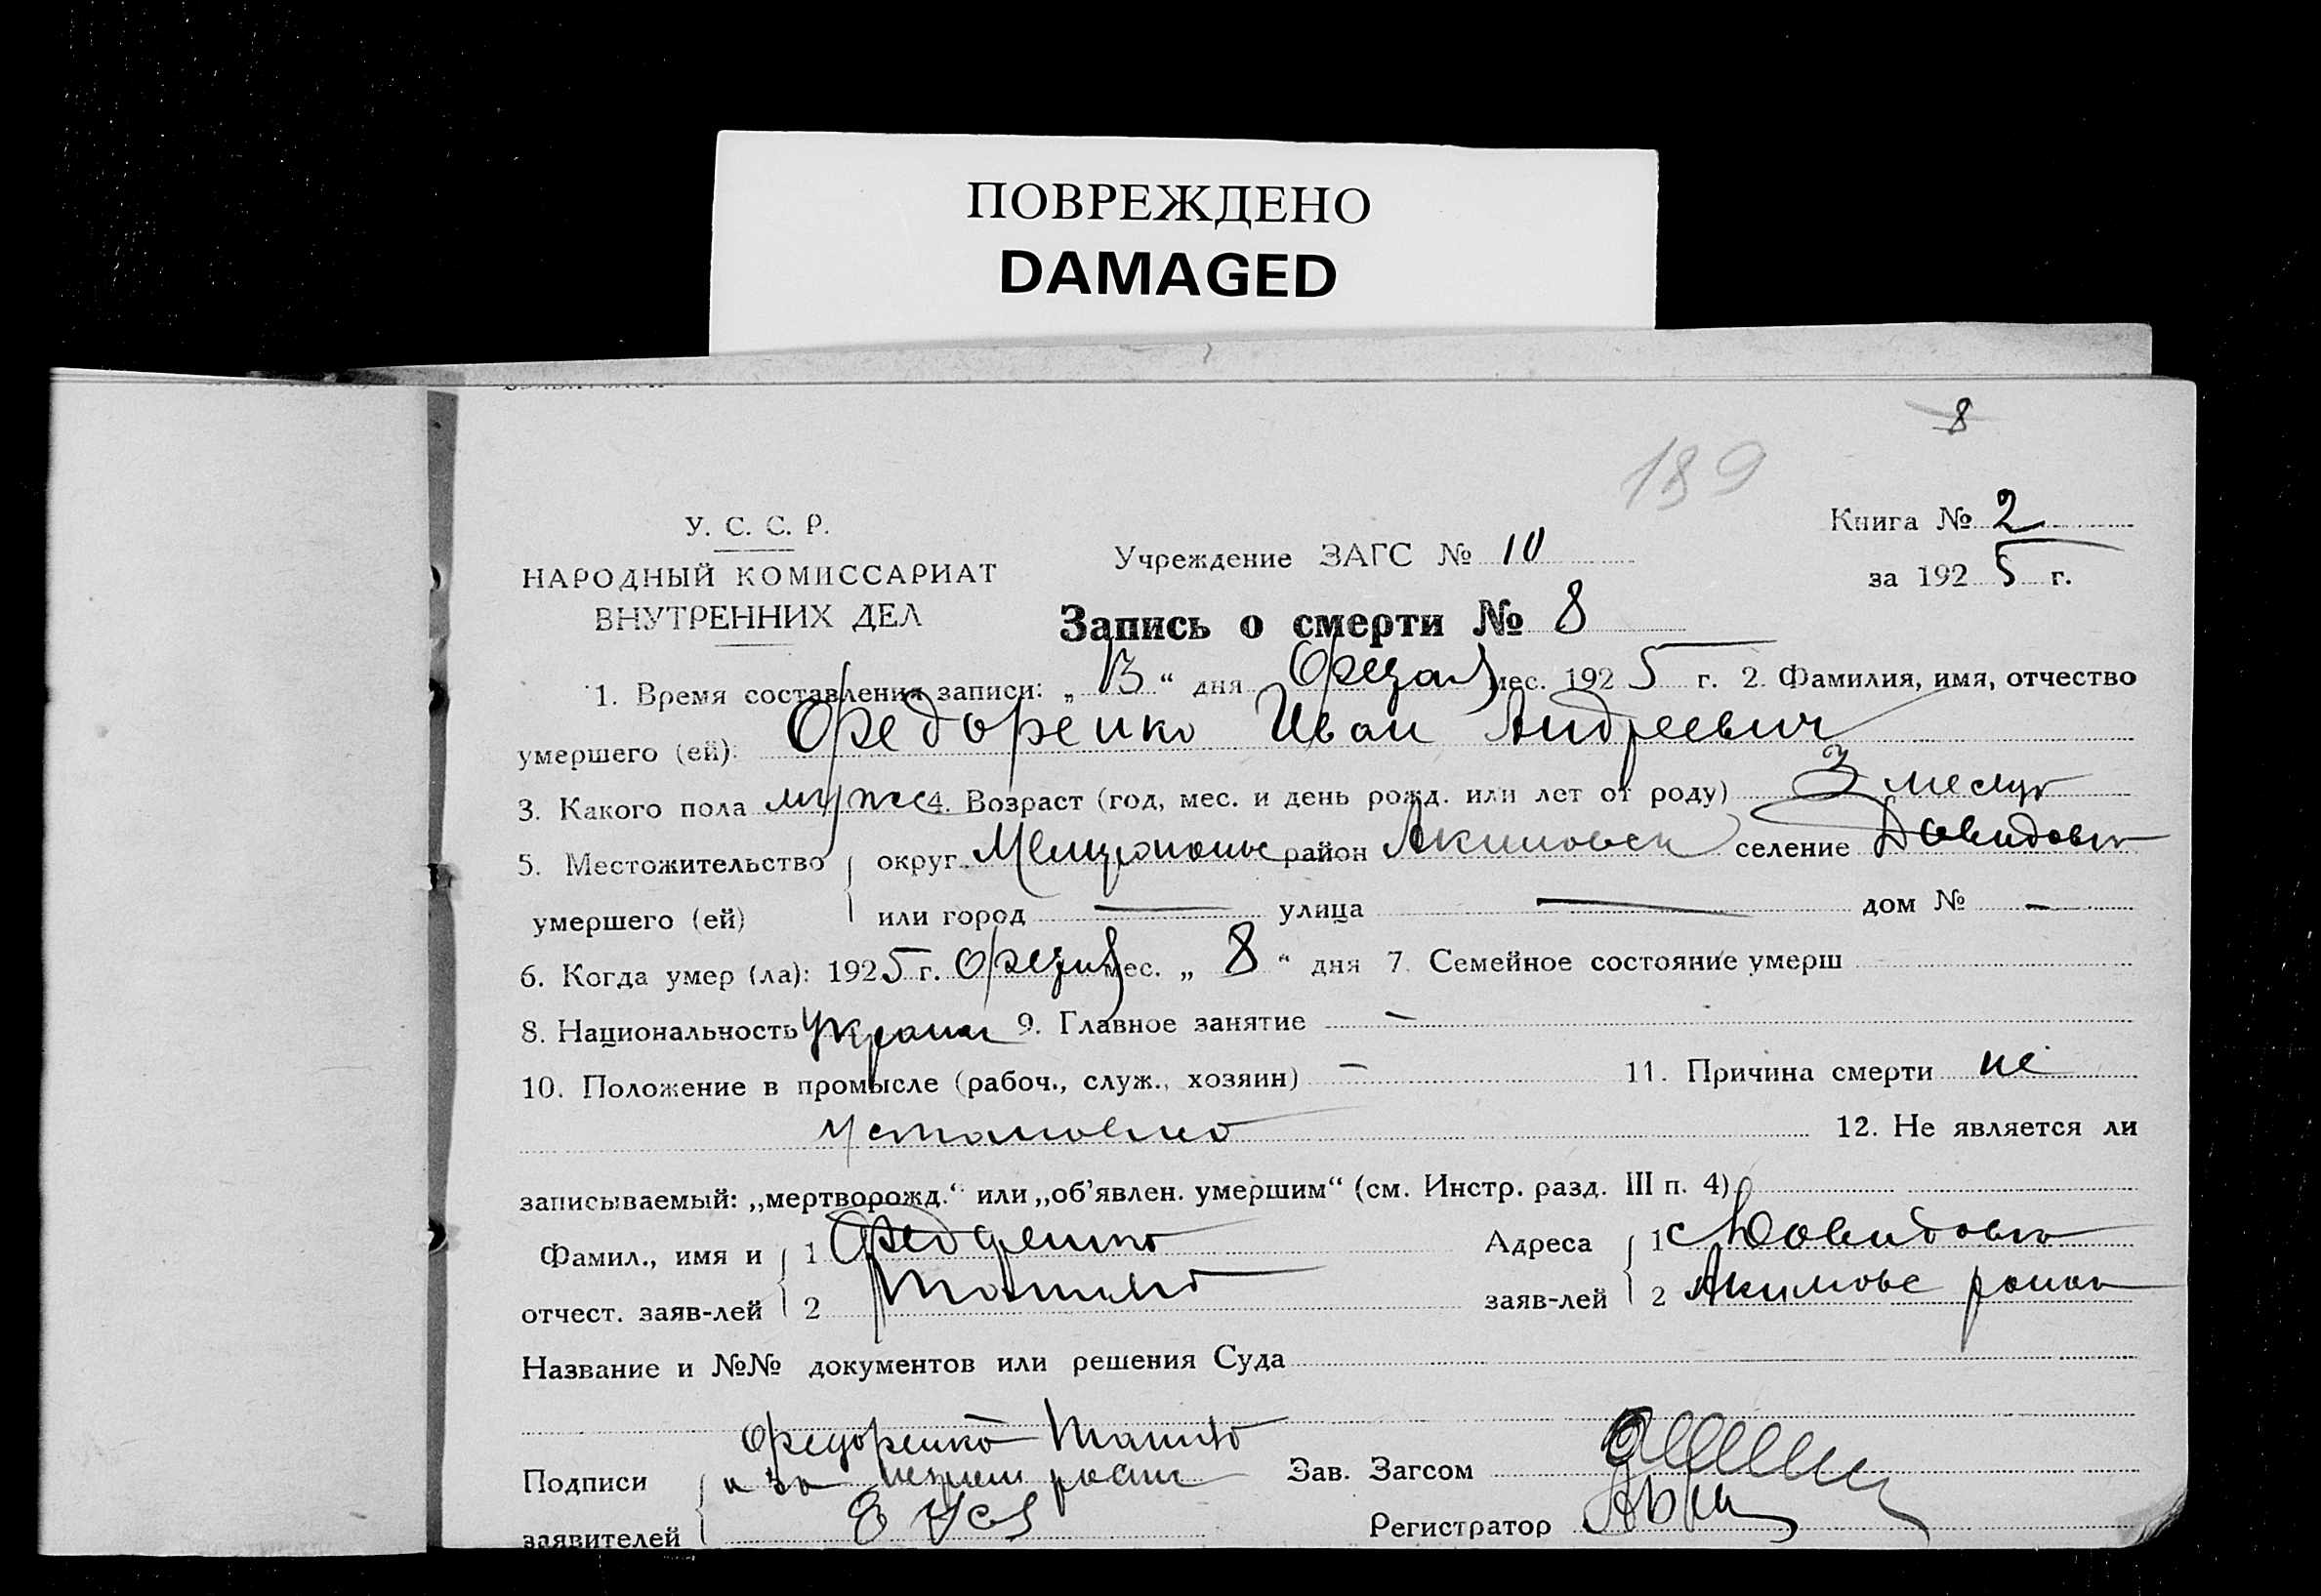 ПОВРЕЖДЕНО
DAMAGED
8
189
У. С. С. Р.
НАРОДНЫЙ КОМИССАРИАТ
ВНУТРЕННИХ ДЕЛ
Учреждение ЗАГС № 10
Книга № 2
за 1925 г.
Запись о смерти № 8
1. Время составления записи: „13“ дня мес. 1925 г. 2. Фамилия, имя, отчество
умершего (ей): Федоренко Иван Андреевич
3. Какого пола муже 4. Возраст (год, мес. и день рожд. или лет от роду) 3 месяц
5. Местожительство умершего (ей) округ район Акимовск селение Давидовк
или город — улица — дом № —
6. Когда умер (ла): 1925 г. мес. „8“ дня 7. Семейное состояние умерш
8. Национальность Украин 9. Главное занятие —
10. Положение в промысле (рабоч., служ., хозяин) — 11. Причина смерти не
установлено 12. Не является ли
записываемый: „мертворожд.“ или „об’явлен. умершим“ (см. Инстр. разд. III п. 4)
Фамил., имя и отчест. заяв-лей 1 Федоренко
2
Адреса заяв-лей 1 с Довидовка
2 Акимовс район
Название и №№ документов или решения Суда
Подписи заявителей Федоренко
а за
Зав. Загсом
Регистратор